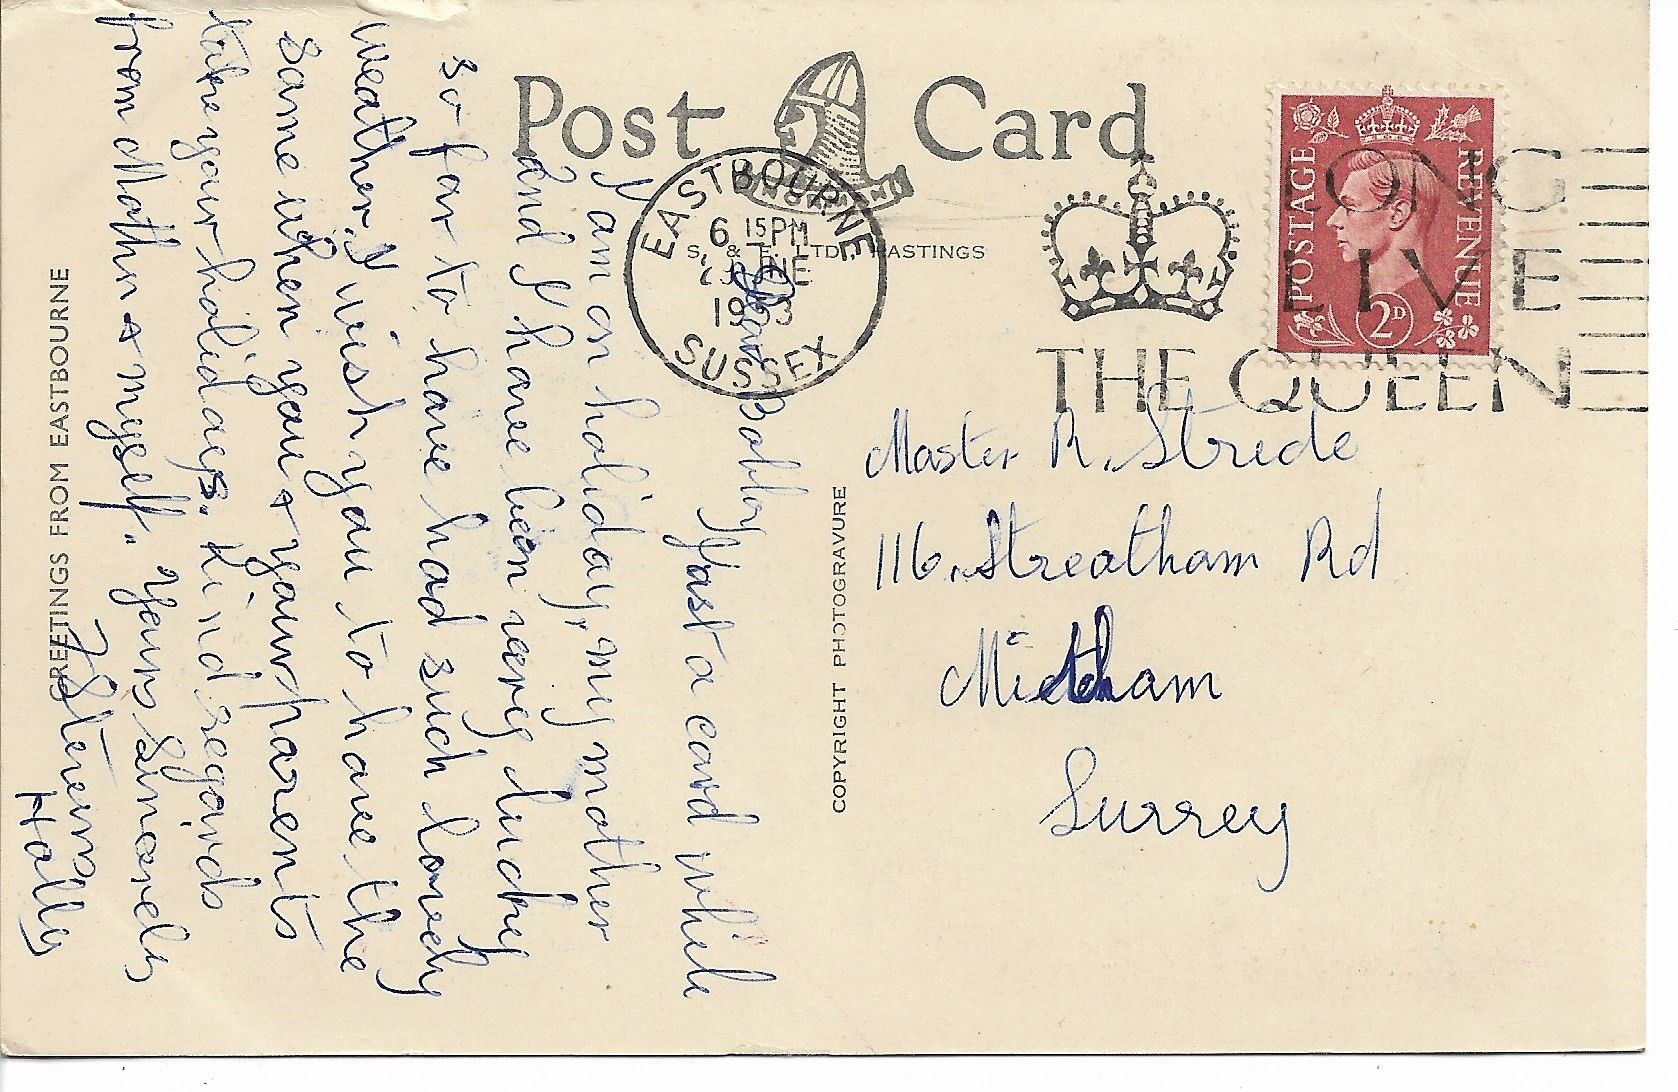 Post Card
EASTBOURNE
6 15 PM
JNE
1953
SUSSEX
S. & E. LTD. HASTINGS
LONG
LIVE
THE QUEEN
POSTAGE
REVENUE
2D
GREETINGS FROM EASTBOURNE
COPYRIGHT PHOTOGRAVURE
Dear Bobby
Just a card while
I am on holiday, my mother
and I have been very lucky
so far to have had such lovely
weather, I wish you to have the
same when you & your parents
take your holidays. Kind regards
from Mother & myself. Yours Sincerely
Holly
Master R. Stride
116. Streatham Rd
Mitcham
Surrey